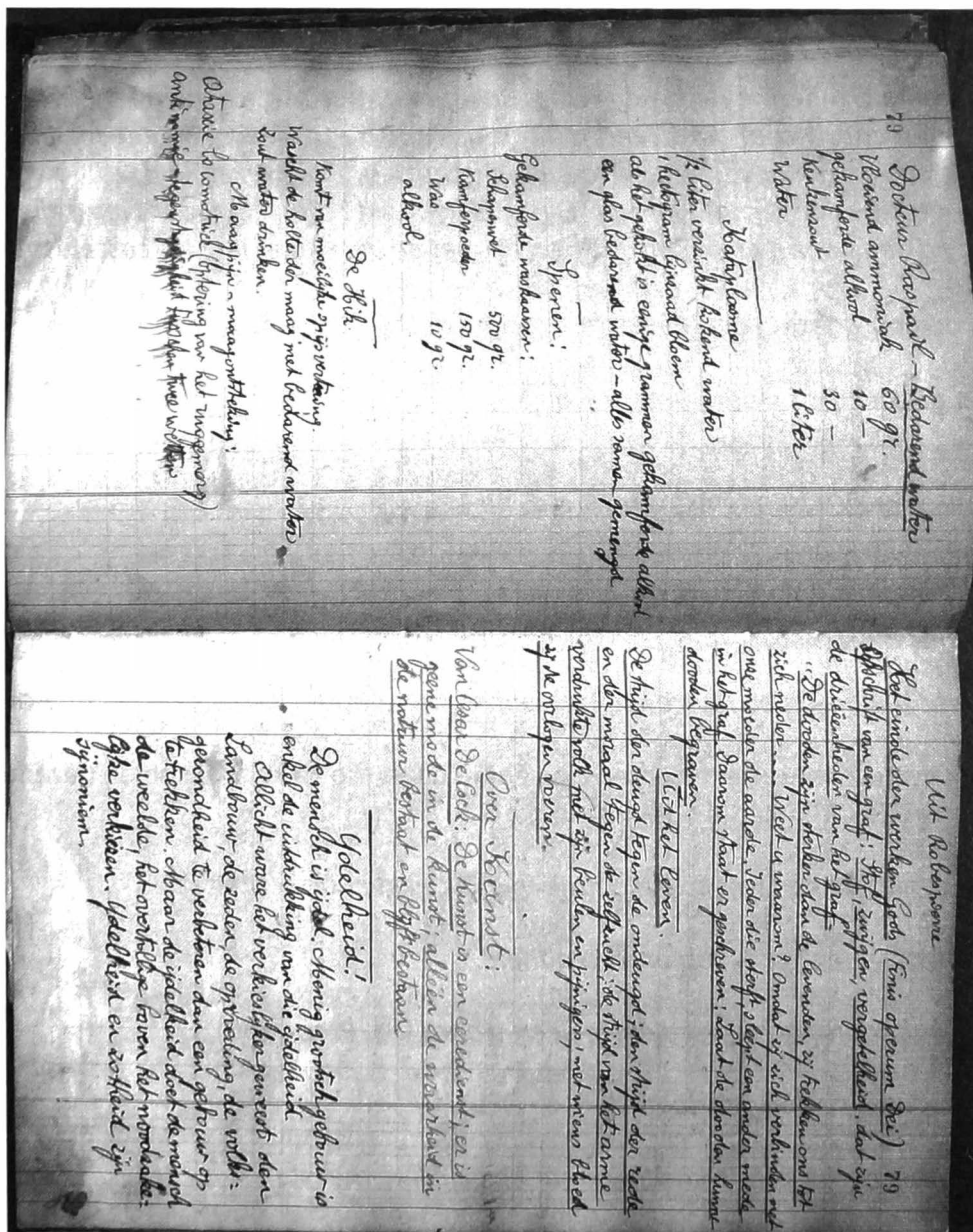 79
Docteur Raspail – Bedarend water
Vloeiend ammoniak 60 gr.
gekamforde alkool 10 –
Keukenzout 30 –
Water 1 liter
Kataplasme
½ liter versint kokend water
1 hectogram lijnzaad bloem
als het gekookt is eenige grammen gekamforde alkool
een glas bedarend water – alles samen gemengd
Spenen:
Gekamforde waskaarsen:
Schapenvet 500 gr.
Kamferpoeder 150 gr.
Was 10 gr.
alkool.
De Hik
Komt van moeilijke spijsvertering.
Wascht de holte der maag met bedarend water
Zout water drinken.
Maagpijn – maagontsteking:
Ataxie locomotrice (uittering van het ruggemerg)
antinomie tegenstrijdigheid tusschen twee wetten
Uit Robespierre
79
Het einde der werken Gods (Finis operum Dei)
Opschrift van een graf: Stof, zwijgen, vergetelheid, dat zijn
de drieëenheden van het graf
"De dooden zijn sterker dan de levenden, zij trekken ons tot
zich neder... Weet u waarom? Omdat zij zich verbinden met
onze moeder de aarde. Ieder die sterft, sleept een ander mede
in het graf. Daarom staat er geschreven: Laat de dooden hunne
dooden begraven.
Uit het leven.
De strijd der deugd tegen de ondeugd; den strijd der rede
en der moraal tegen de zelfzucht; de strijd van het arme
verdrukte volk met zijn beulen en pijnigers, met wiens bloed
zij de oorlogen voeren.
Over Kunst:
Van Cesar De Cock: De kunst is een eeredienst; er is
geene mode in de kunst, alléén de waarheid in
de natuur bestaat en blijft bestaan
Ydelheid!
De mensch is ijdel. Menig grootsch gebouw is
enkel de uitdrukking van die eidelheid
Allicht ware het verkieslijker geweest den
Landbouw, de zeden, de opvoeding, de volks=
gezondheid te verbeteren dan een gebouw op
te trekken. Maar de ijdelheid doet de mensch
de weelde, het overtollige boven het noodzake=
lijke verkiezen. Ydelheid en zotheid zijn
sijnoniem.